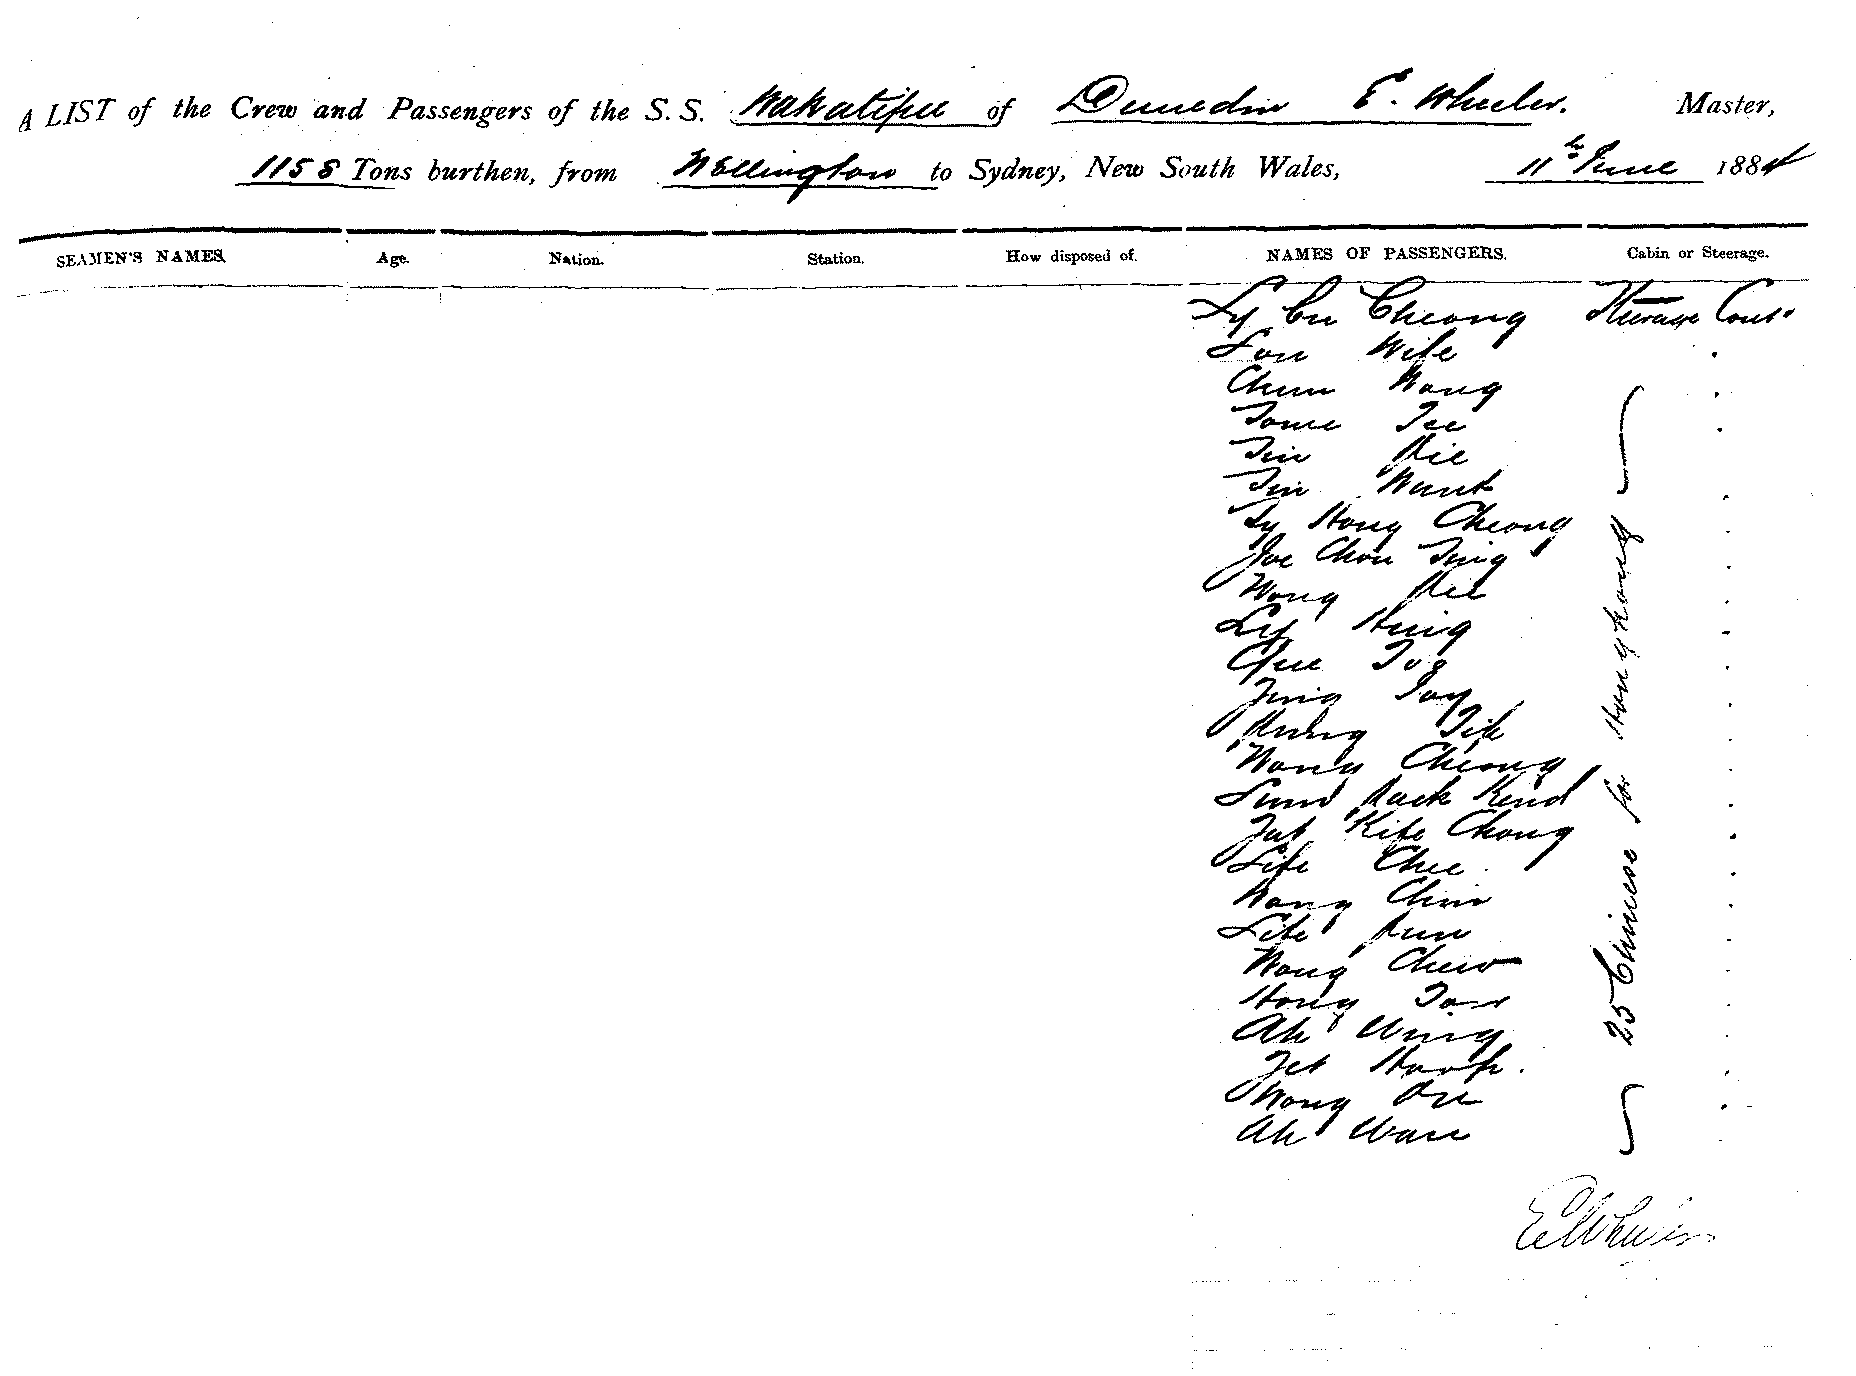 A LIST of the Crew and Passengers of the S.S. Wakatipu of Dunedin E. Wheeler. Master,
1158 Tons burthen, from Wellington to Sydney, New South Wales, 11th June 1884
SEAMEN'S NAMES. Age. Nation. Station. How disposed of. NAMES OF PASSENGERS. Cabin or Steerage.
Ly Cu Cheong Steerage Cont.
Son Wife
Chum Wong
Tome Tee
Tin Kee
Tin Wunk
Ly Hong Cheong
Joe Chou Ting
Wong Kee
Ly Hing
Que Toy
Jing Tay
Kung Tik
Wong Cheong
Sum Kack Kend
Jut Kite Chong
Sife Chee
Wong Chin
Site Kun
Wong Chew
Hong Tow
Ah Wing
Jet Hook.
Wong Kee
Ah Wan
25 Chinese for Hongkong
E Wheeler